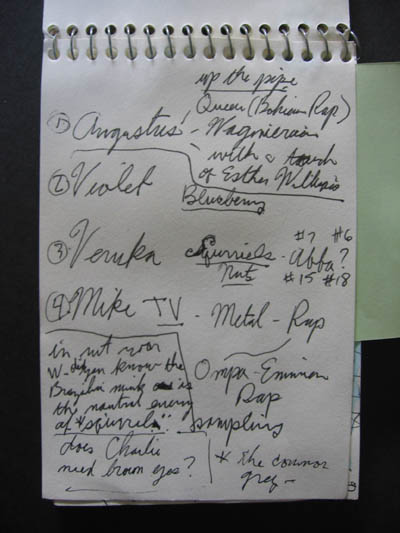 up the pipe
① Augustus' - Queen (Bohiem Rap)
Wagnierain
with a touch
of Esther Williams
② Violet
Blueberry
③ Veruka squirrels - Abba?
Nuts
#7 #6
#15 #18
④ Mike TV - Metal - Rap
in nut room
W- know the
Brazilian mink is
the nautral enemy
of *squirrels!!
Ompa - Eminim
Rap
sampling
does Charlie
need brown eyes?
* the common
grey -